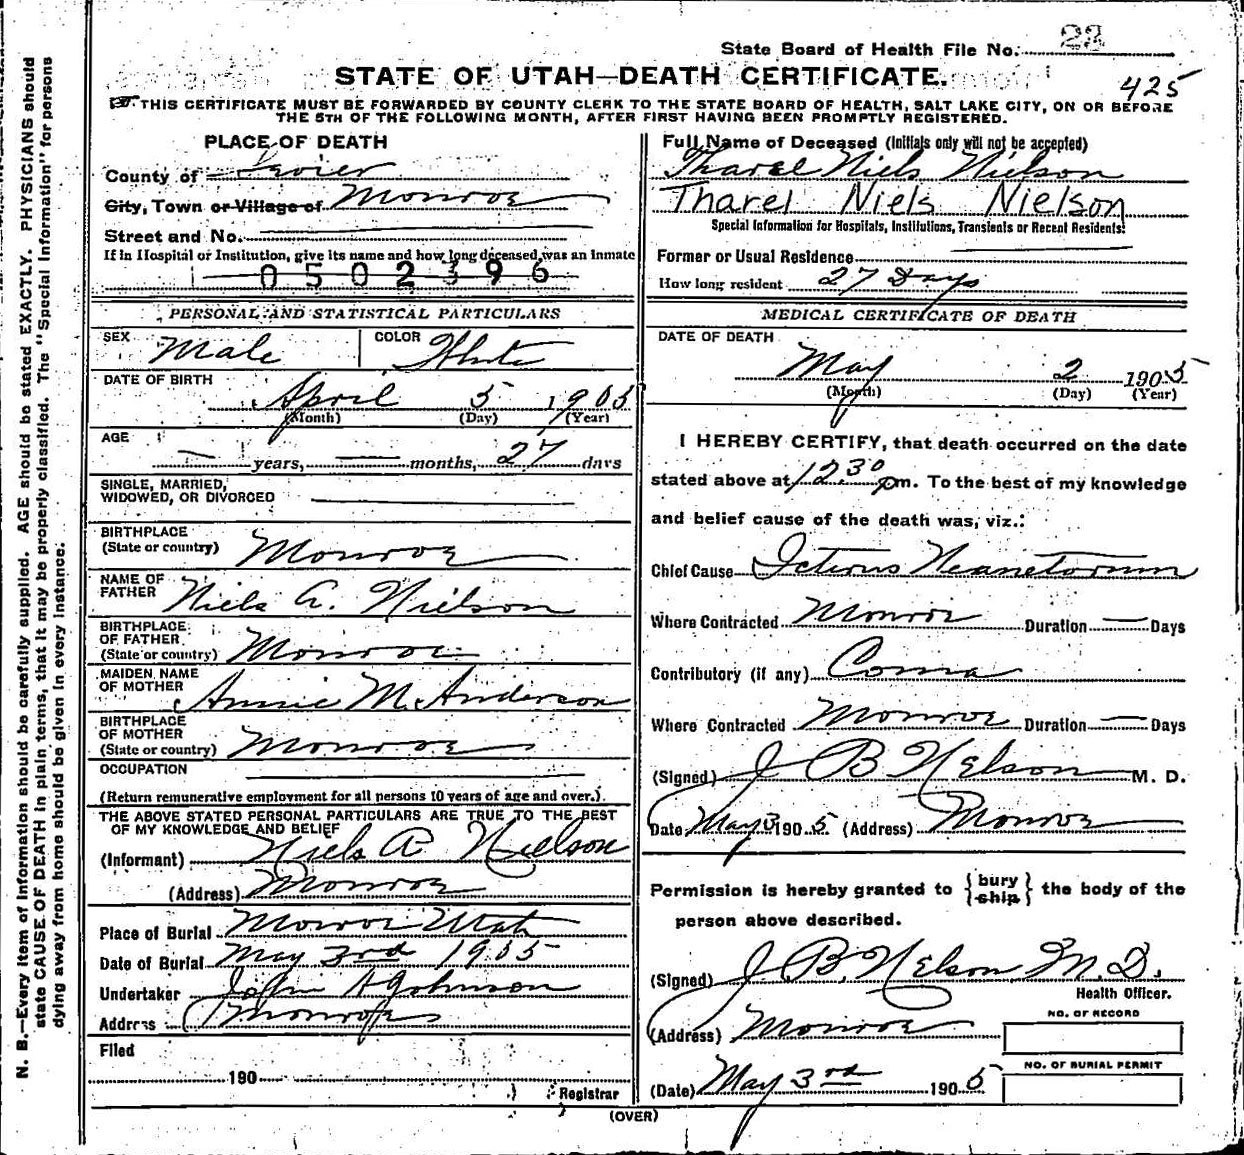 State Board of Health File No. 23
STATE OF UTAH—DEATH CERTIFICATE.
425
THIS CERTIFICATE MUST BE FORWARDED BY COUNTY CLERK TO THE STATE BOARD OF HEALTH, SALT LAKE CITY, ON OR BEFORE
THE 5TH OF THE FOLLOWING MONTH, AFTER FIRST HAVING BEEN PROMPTLY REGISTERED.
PLACE OF DEATH
County of Sevier
City, Town or Village of Monroe
Street and No.
If in Hospital or Institution, give its name and how long deceased was an Inmate
0502396
Full Name of Deceased (Initials only will not be accepted)
Tharel Niels Nielson
Tharel Niels Nielson
Special Information for Hospitals, Institutions, Transients or Recent Residents:
Former or Usual Residence
How long resident 27 Days
PERSONAL AND STATISTICAL PARTICULARS
SEX Male COLOR White
DATE OF BIRTH
April 5 1905
(Month) (Day) (Year)
AGE
— years, — months, 27 days
SINGLE, MARRIED,
WIDOWED, OR DIVORCED
BIRTHPLACE
(State or country) Monroe
NAME OF
FATHER Niels A. Nielson
BIRTHPLACE
OF FATHER
(State or country) Monroe
MAIDEN NAME
OF MOTHER Annie M. Anderson
BIRTHPLACE
OF MOTHER
(State or country) Monroe
OCCUPATION
(Return remunerative employment for all persons 10 years of age and over.)
THE ABOVE STATED PERSONAL PARTICULARS ARE TRUE TO THE BEST
OF MY KNOWLEDGE AND BELIEF
(Informant) Niels A Nielson
(Address) Monroe
Place of Burial Monroe Utah
Date of Burial May 3rd 1905
Undertaker John A Johnson
Address Monroe
Filed
190
Registrar
MEDICAL CERTIFICATE OF DEATH
DATE OF DEATH
May 2 1905
(Month) (Day) (Year)
I HEREBY CERTIFY, that death occurred on the date
stated above at 1230 pm. To the best of my knowledge
and belief cause of the death was, viz.:
Chief Cause Icterus Neanetorum
Where Contracted Monroe Duration — Days
Contributory (if any) Coma
Where Contracted Monroe Duration — Days
(Signed) J B Nelson M. D.
Date May 3 1905 (Address) Monroe
Permission is hereby granted to {bury
ship} the body of the
person above described.
(Signed) J. B. Nelson M.D.
Health Officer.
(Address) Monroe
NO. OF RECORD
NO. OF BURIAL PERMIT
(Date) May 3rd 1905
(OVER)
N. B.—Every item of information should be carefully supplied. AGE should be stated EXACTLY. PHYSICIANS should
state CAUSE OF DEATH in plain terms, that it may be properly classified. The "Special Information" for persons
dying away from home should be given in every instance.